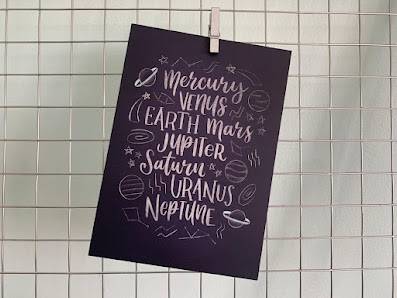 Mercury
VENUS
EARTH Mars
JUPITER
Saturn
URANUS
NePTUNE